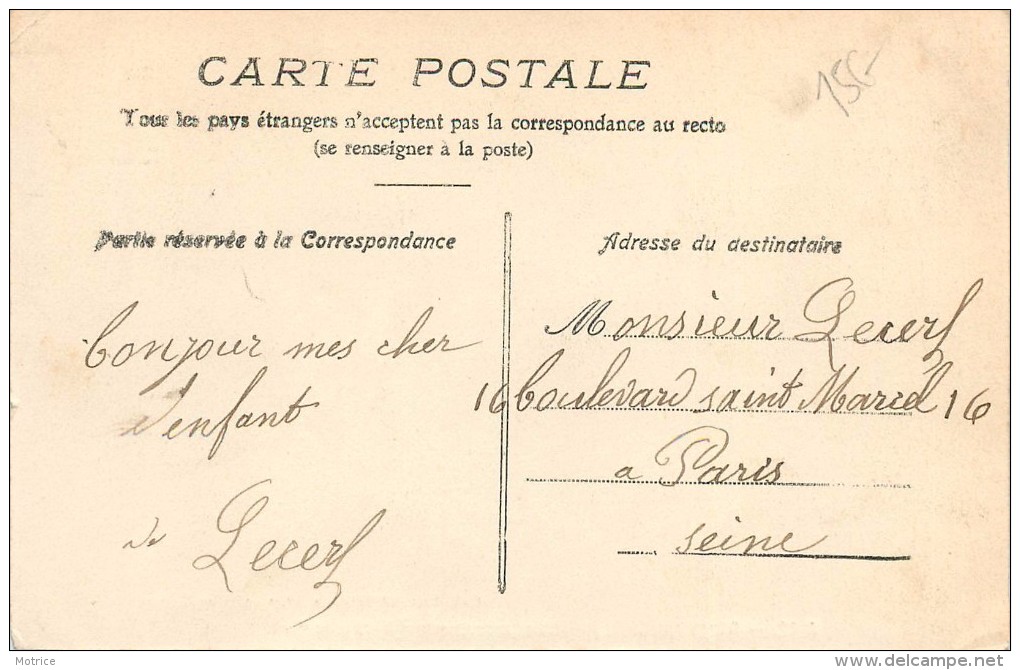 CARTE POSTALE
Tous les pays étrangers n'acceptent pas la correspondance au recto
(se renseigner à la poste)
Partie réservée à la Correspondance
Adresse du destinataire
bonjour mes cher
d'enfant
de Lecerf
Monsieur Lecerf
16 boulevard saint Marcel 16
a Paris
seine
Motrice
http://www.delcampe.net